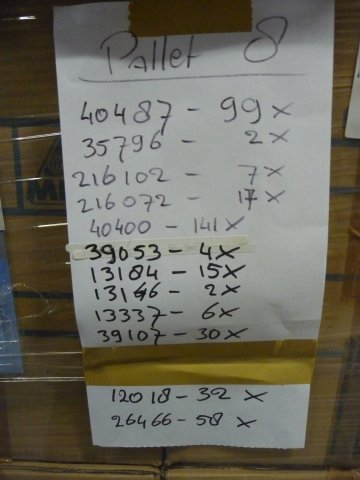 Pallet 8
40487 - 99x
35796 - 2x
216102 - 7x
216072 - 17x
40400 - 141x
39053 - 4x
13184 - 15x
13146 - 2x
13337 - 6x
39107 - 30x
12018 - 32 x
26466 - 58 x